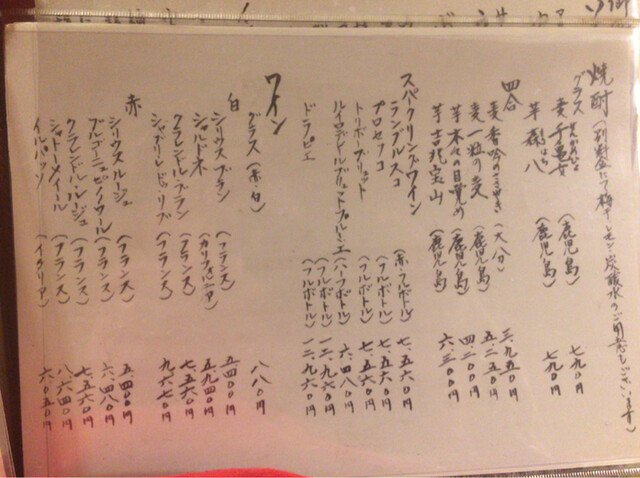 焼酎(別料金にて梅干しレモン炭酸水のご用意もございます)
グラス
麦 千亀女 (鹿児島) 七九〇円
芋 孫八 (鹿児島) 七九〇円
四合
麦 香吟のささやき (大分) 三、九五〇円
麦 一粒の麦 (鹿児島) 五二五〇円
芋 木々の目覚め (鹿児島) 四二〇〇円
芋 吉兆宝山 (鹿児島) 六、三〇〇円
スパークリングワイン
ランブルスコ (赤・フルボトル) 七、五六〇円
プロセッコ (フルボトル) 七、五六〇円
トリボーブリュット (フルボトル) 七、五六〇円
ルイロデレールブリュットプルミエ (ハーフボトル) 六、四八〇円
(フルボトル) 一二、九六〇円
ドラピエ (フルボトル) 一二、九六〇円
ワイン
グラス(赤・白) 八八〇円
白
シリウスブラン (フランス) 五四〇〇円
シャルドネ (カリフォルニア) 五、九四〇円
クラレンドル・ブラン (フランス) 七、五六〇円
(フランス) 九六七〇円
赤
シリウスルージュ (フランス) 五四〇〇円
ブルゴーニュピノノワール (フランス) 六、四八〇円
クラレンドル・ルージュ (フランス) 七、五六〇円
シャトーメイール (フランス) 八六四〇円
イルバッソ (イタリア) 六、〇五〇円